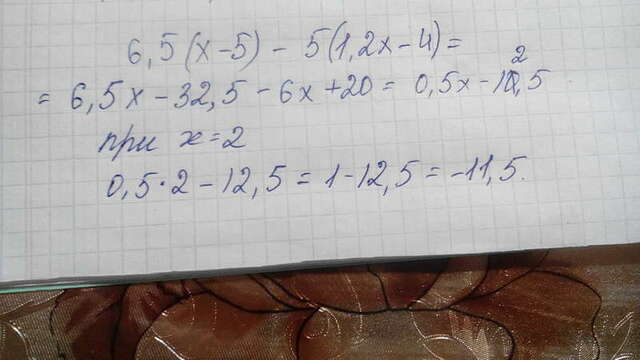 6,5(x-5) - 5(1,2x-4) =
= 6,5x - 32,5 - 6x + 20 = 0,5x - 12,5
при x=2
0,5·2 - 12,5 = 1 - 12,5 = -11,5.